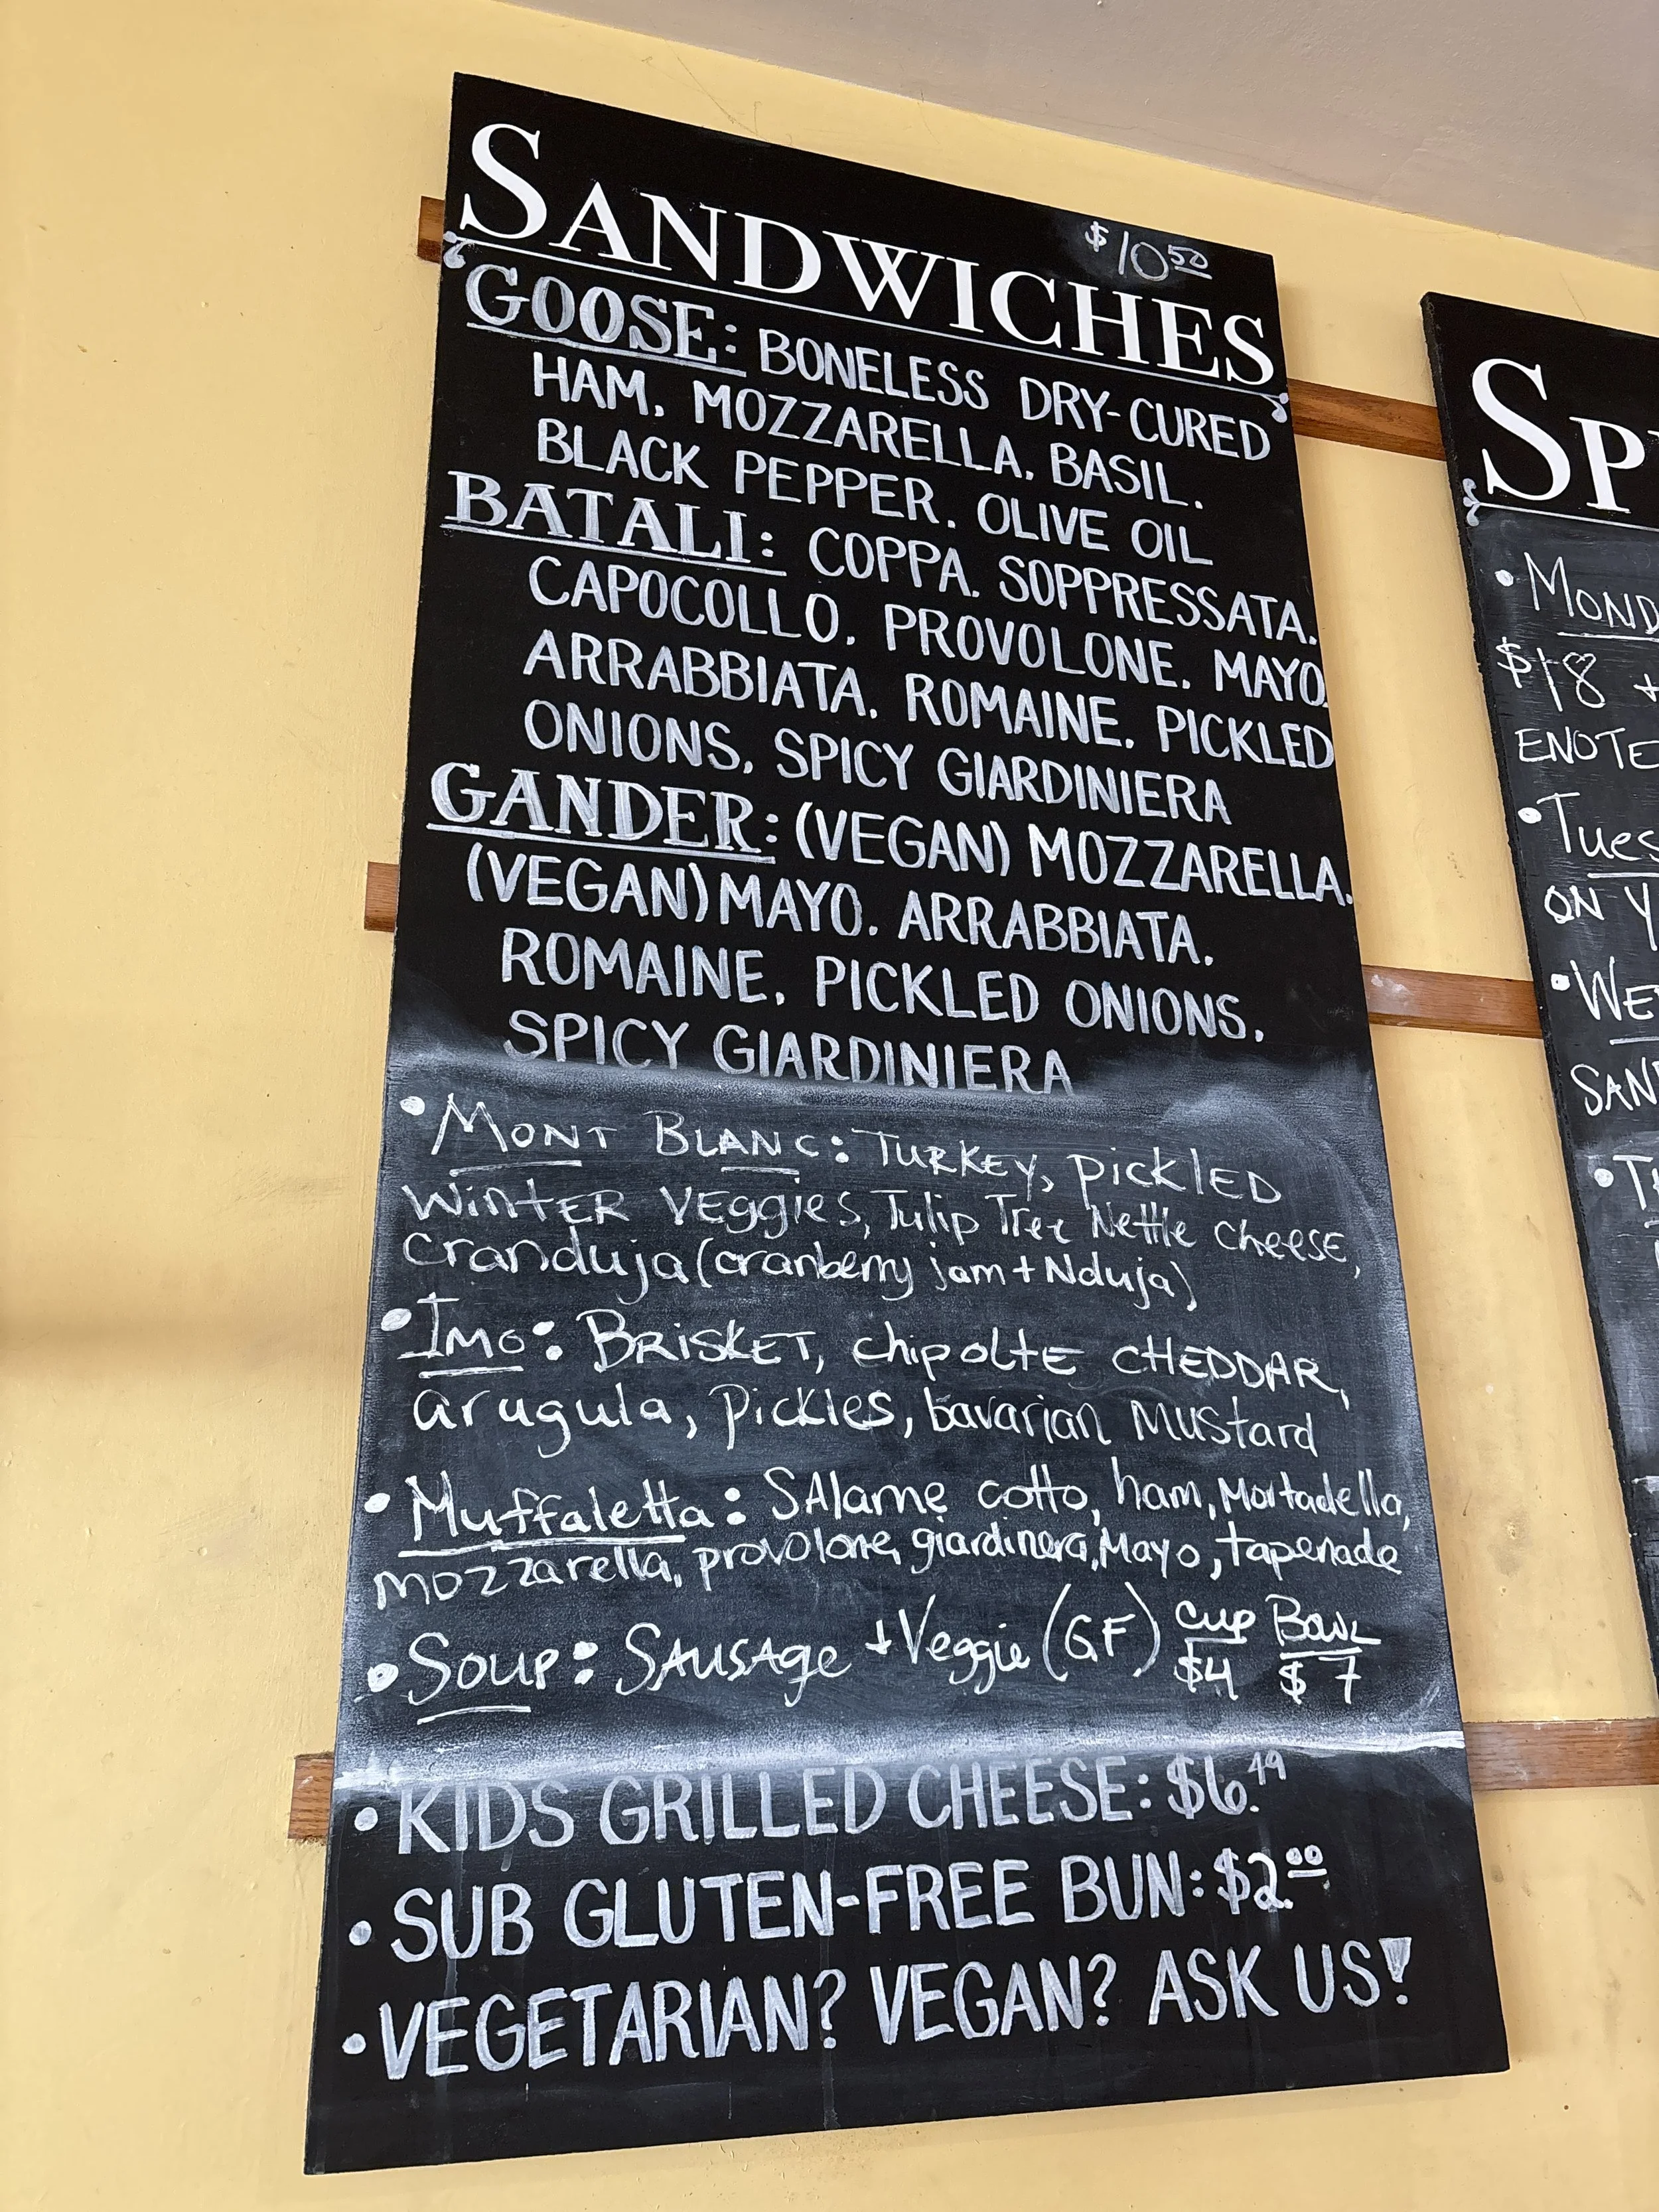 SANDWICHES $10.50
GOOSE: BONELESS DRY-CURED
HAM, MOZZARELLA, BASIL,
BLACK PEPPER, OLIVE OIL
BATALI: COPPA, SOPPRESSATA,
CAPOCOLLO, PROVOLONE, MAYO,
ARRABBIATA, ROMAINE, PICKLED
ONIONS, SPICY GIARDINIERA
GANDER: (VEGAN) MOZZARELLA,
(VEGAN) MAYO, ARRABBIATA,
ROMAINE, PICKLED ONIONS,
SPICY GIARDINIERA
• MONT BLANC: TURKEY, PICKLED
WINTER VEggies, Tulip Tree Nettle cheese,
cranduja (cranberry jam + Nduja)
• IMO: BRISKET, chipolte CHEDDAR,
arugula, pickles, bavarian Mustard
• Muffaletta: SAlame cotto, ham, Mortadella,
mozzarella, provolone, giardinera, Mayo, tapenade
• Soup: SAUSAge + Veggie (GF) cup $4 BOWL $7
• KIDS GRILLED CHEESE: $6.49
• SUB GLUTEN-FREE BUN: $2.00
• VEGETARIAN? VEGAN? ASK US!
SP
• MOND
$18 +
ENOTE
• TUES
ON Y
• WE
SAN
• T